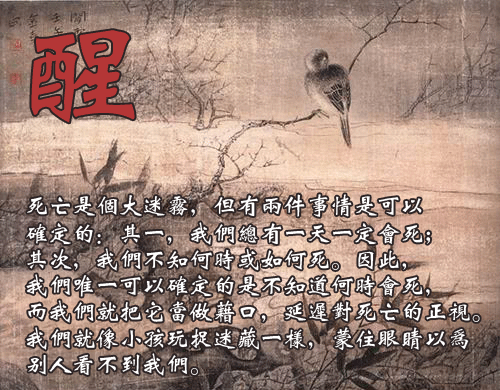 醒
死亡是個大迷霧，但有兩件事情是可以
確定的：其一，我們總有一天一定會死；
其次，我們不知何時或如何死。因此，
我們唯一可以確定的是不知道何時會死，
而我們就把它當做藉口，延遲對死亡的正視。
我們就像小孩玩捉迷藏一樣，蒙住眼睛以爲
別人看不到我們。